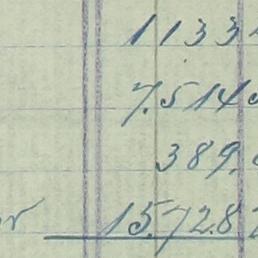 1133
7.514
389.
15.728